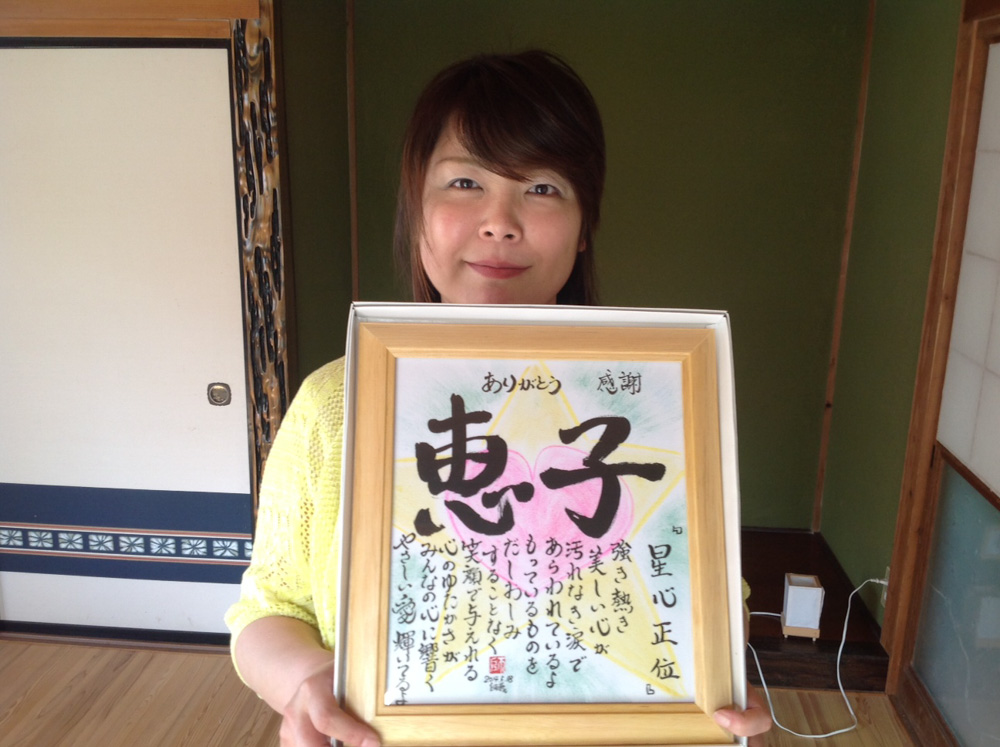 ありがとう 感謝
恵子
『星心正位』
強き熱き
美しい心が
汚れなき涙で
あらわれているよ
もっているものを
だしおしみ
することなく
笑顔で与えれる
心のゆたかさが
みんなの心に響く
やさしい愛輝いてるよ